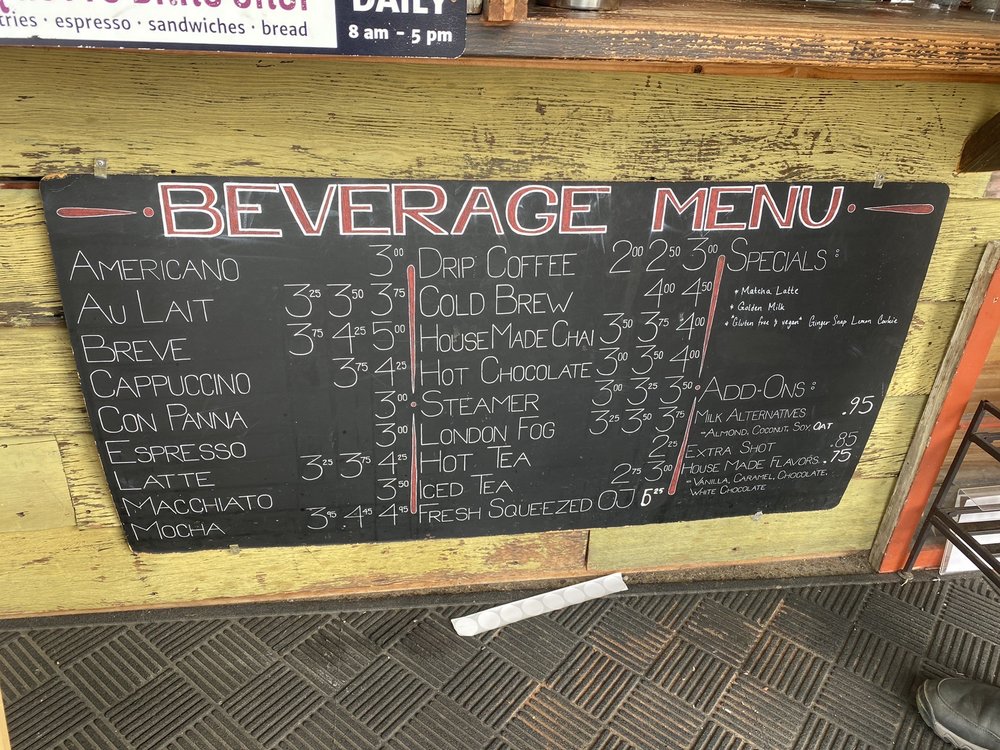 DAILY
tries · espresso · sandwiches · bread
8 am - 5 pm
BEVERAGE MENU
AMERICANO 3.00
AU LAIT 3.25 3.50 3.75
BREVE 3.75 4.25 5.00
CAPPUCCINO 3.75 4.25
CON PANNA 3.00
ESPRESSO 3.00
LATTE 3.25 3.75 4.25
MACCHIATO 3.50
MOCHA 3.95 4.45 4.95
DRIP COFFEE 2.00 2.50 3.00
COLD BREW 4.00 4.50
HOUSE MADE CHAI 3.50 3.75 4.00
HOT CHOCOLATE 3.00 3.50 4.00
STEAMER 3.00 3.25 3.50
LONDON FOG 3.25 3.50 3.75
HOT TEA 2.25
ICED TEA 2.75 3.00
FRESH SQUEEZED OJ
SPECIALS:
* Matcha Latte
* Golden Milk
* "Gluten free & vegan" Ginger Snap Lemon Cookie
ADD-ONS:
MILK ALTERNATIVES .95
-ALMOND, COCONUT, SOY, OAT
EXTRA SHOT .85
HOUSE MADE FLAVORS .75
-VANILLA, CARAMEL, CHOCOLATE,
WHITE CHOCOLATE